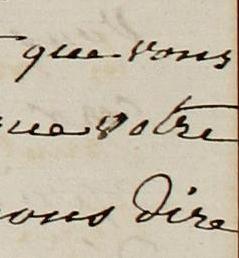 que vous
votre
vous dire